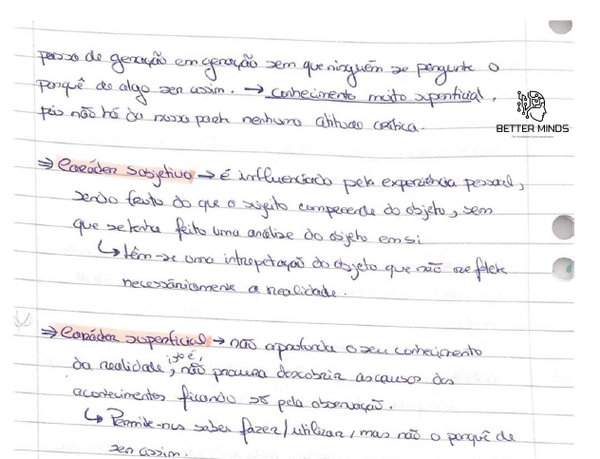 passa de geração em geração sem que ninguém se pergunte o
porquê de algo ser assim. → conhecimento muito superficial,
pois não há da nossa parte nenhuma atitude crítica.
BETTER MINDS
⇒ Caráter subjetivo → é influenciado pela experiência pessoal,
sendo fruto do que o sujeito compreende do objeto, sem
que se tenha feito uma análise do objeto em si
↳ têm-se uma intrepetação do objeto que não reflete
necessáriamente a realidade.
⇒ Caráter superficial → não aprofunda o seu conhecimento
da realidade, isto é, não procura descobrir as causas dos
acontecimentos ficando só pela observação.
↳ Permite-nos saber fazer/utilizar, mas não o porquê de
ser assim.